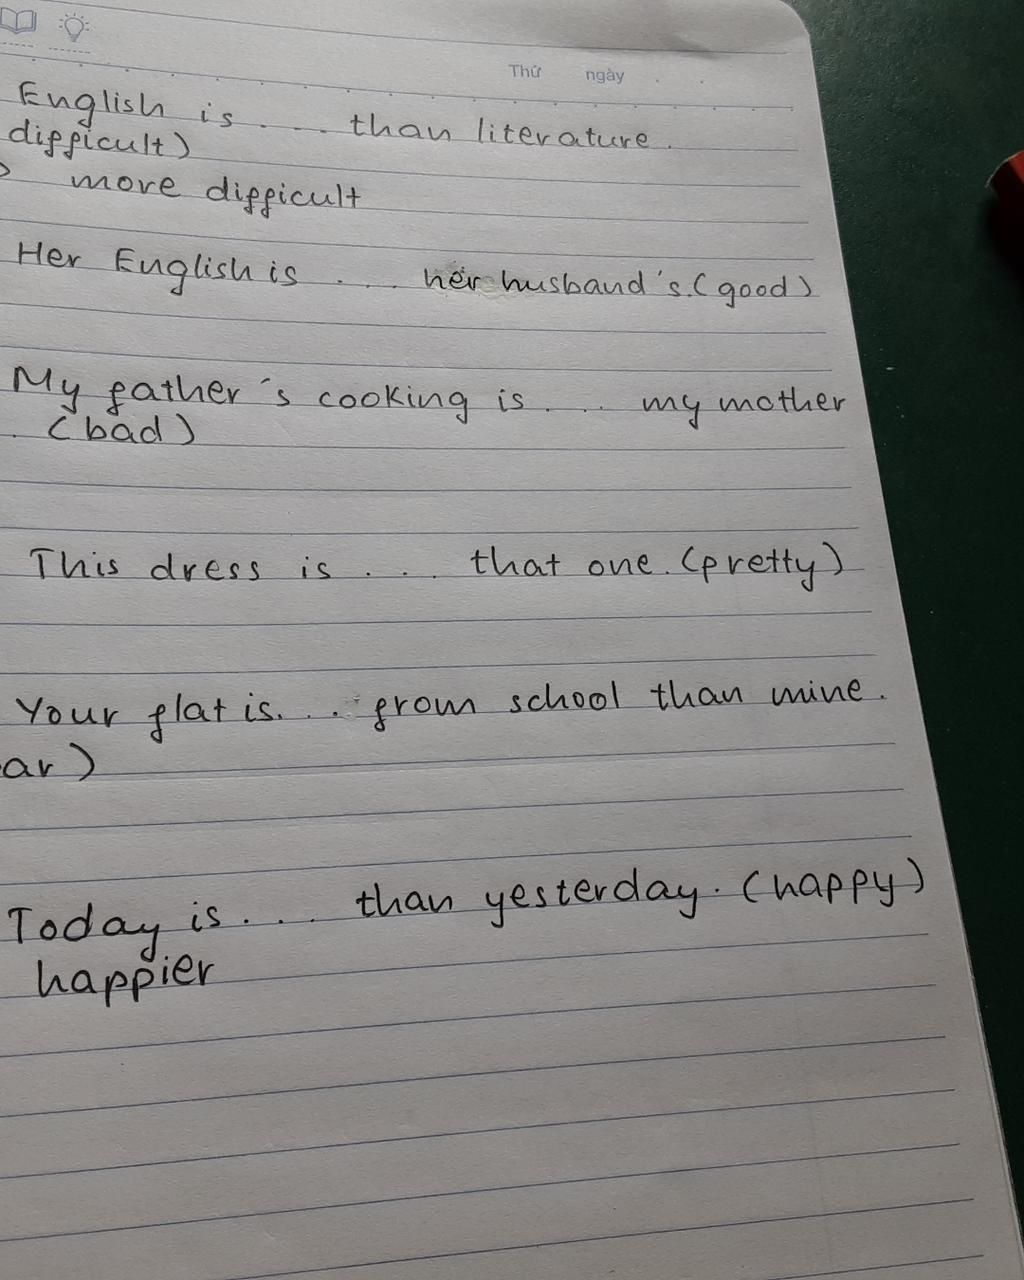 Thứ ngày
English is .... than literature.
difficult)
more difficult
Her English is .... her husband's. (good)
My father's cooking is .... my mother
(bad)
This dress is .... that one. (pretty)
Your flat is.... from school than mine.
ar)
Today is .... than yesterday. (happy)
happier